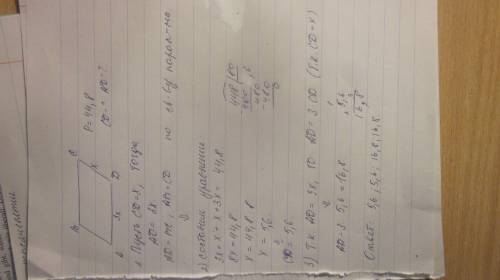 B
C
x
A
3x
D
P=44,8
CD=? AD=?
1) Пусть CD=x, тогда
AD=3x
AD=BC, AB=CD по св-ву парал-ма
2) составим уравнение
3x+x+x+3x=44,8
8x=44,8
x=44,8:8
x=5,6
CD=5,6
448|80
3) Т.к. AD=3x, то AD=3·CD (т.к. CD=x)
AD=3·5,6=16,8
5,6
3
16,8
Ответ: 5,6; 5,6; 16,8; 16,8